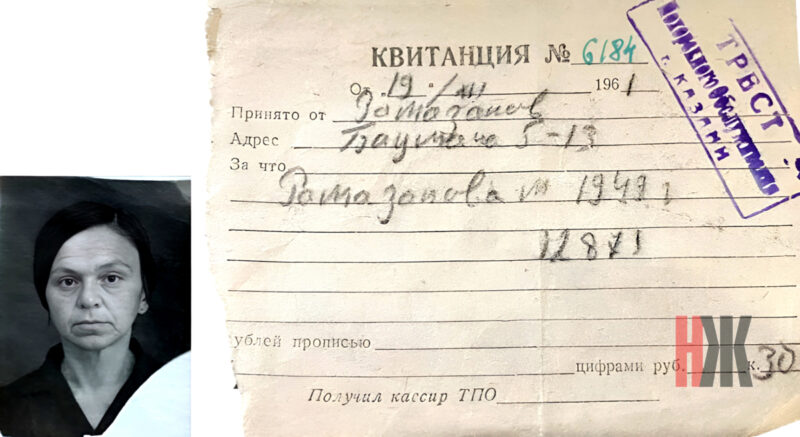 КВИТАНЦИЯ № 6184
От „19" /XII 1961
Принято от Рамазанов
Адрес Баумана 5-13
За что
Рамазанова М 1949 г
12871
рублей прописью
цифрами руб. к. 30
Получил кассир ТПО
ТРЕСТ
г. КАЗАНИ
НЖ